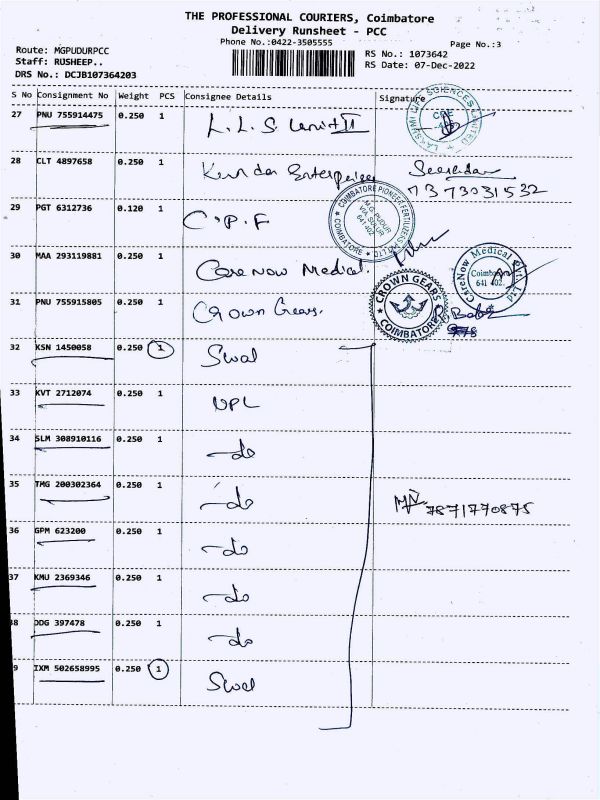 THE PROFESSIONAL COURIERS, Coimbatore
Delivery Runsheet - PCC
Phone No.:0422-3505555
Page No.:3
Route: MGPUDURPCC
Staff: RUSHEEP..
DRS No.: DCJB107364203
RS No.: 1073642
RS Date: 07-Dec-2022
S No Consignment No Weight PCS Consignee Details Signature
27 PNU 755914475 0.250 1 L.L.S. Unit II
28 CLT 4897658 0.250 1 Enterprises
7373031532
29 PGT 6312736 0.120 1 C.P.F
COIMBATORE PIONEER FERTILIZERS LIMITED
M.G. PUDUR
VIA SULUR
641 402
COIMBATORE
30 MAA 293119881 0.250 1 CareNow Medical.
CareNow Medical Pvt. Ltd
Coimbatore
641 402.
31 PNU 755915805 0.250 1 Crown Gears.
CROWN GEARS
COIMBATORE
32 KSN 1450058 0.250 1 Swal
33 KVT 2712074 0.250 1 UPL
34 SLM 308910116 0.250 1 -do
35 TMG 200302364 0.250 1 -do
7871770875
36 GPM 623200 0.250 1 -do
37 KMU 2369346 0.250 1 -do
8 DDG 397478 0.250 1 -do
9 IXM 502658995 0.250 1 Swal